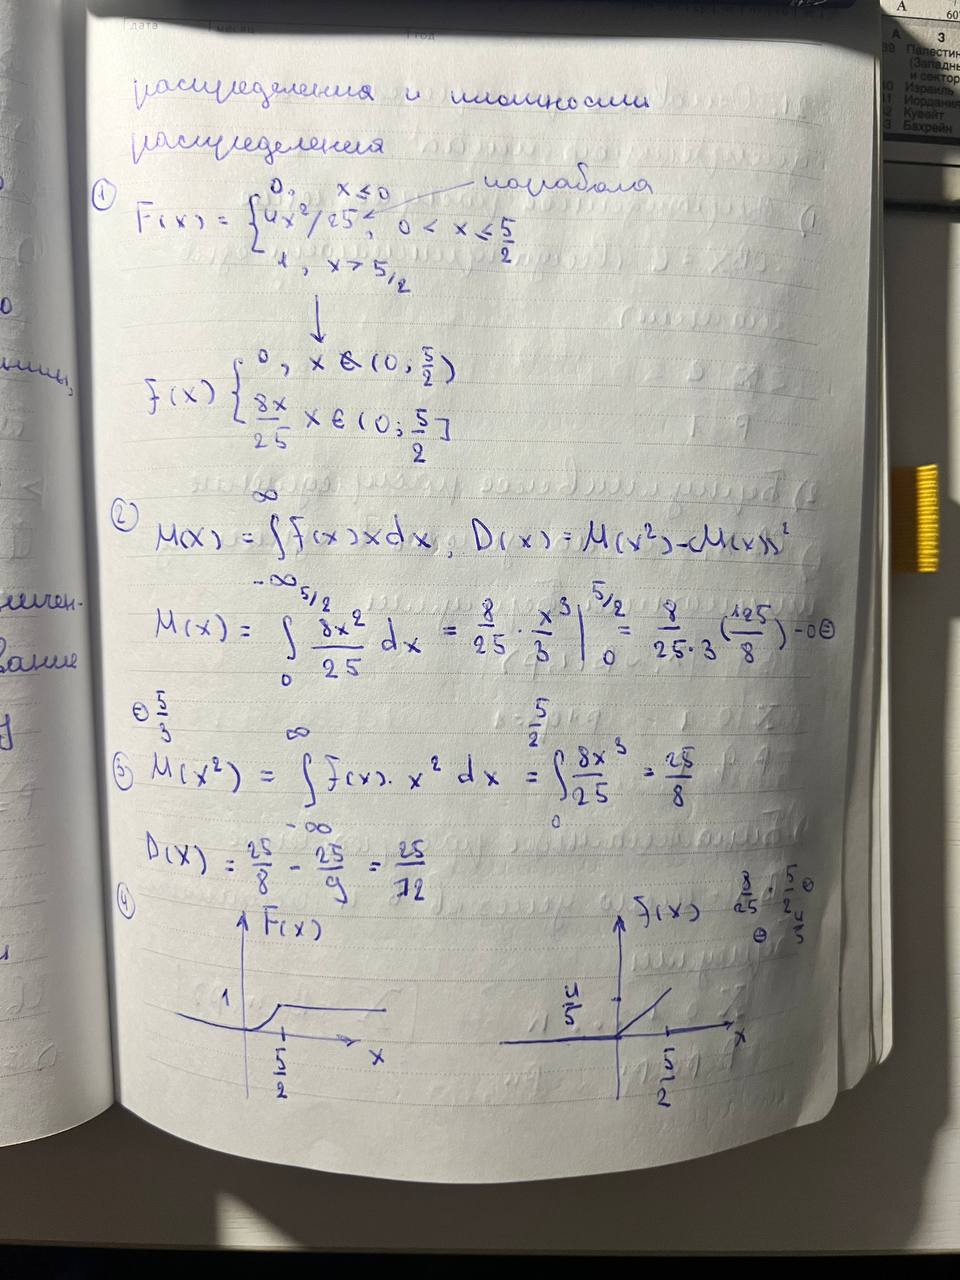 дата
месяц
год
распределения и плотности
распределения
① F(x) = { 0, x ≤ 0
4x²/25, 0 < x ≤ 5/2 ← парабола
1, x > 5/2
↓
f(x) { 0, x ∉ (0; 5/2)
8x/25 x ∈ (0; 5/2]
② M(x) = ∫_{-∞}^{∞} f(x) x dx, D(x) = M(x²) - (M(x))²
M(x) = ∫_0^{5/2} 8x²/25 dx = 8/25 · x³/3 |_0^{5/2} = 8/(25·3) (125/8) - 0 ⊜
⊜ 5/3
③ M(x²) = ∫_{-∞}^{∞} f(x) · x² dx = ∫_0^{5/2} 8x³/25 = 25/8
D(x) = 25/8 - 25/9 = 25/72
④ F(x)
1
5/2
x
f(x)
4/5
5/2
x
8/25 · 5/2 ⊜
⊜ 4/5
А
60
А З
39 Палестин
(Западны
и сектор
40 Израиль
41 Иордания
42 Кувейт
43 Бахрейн